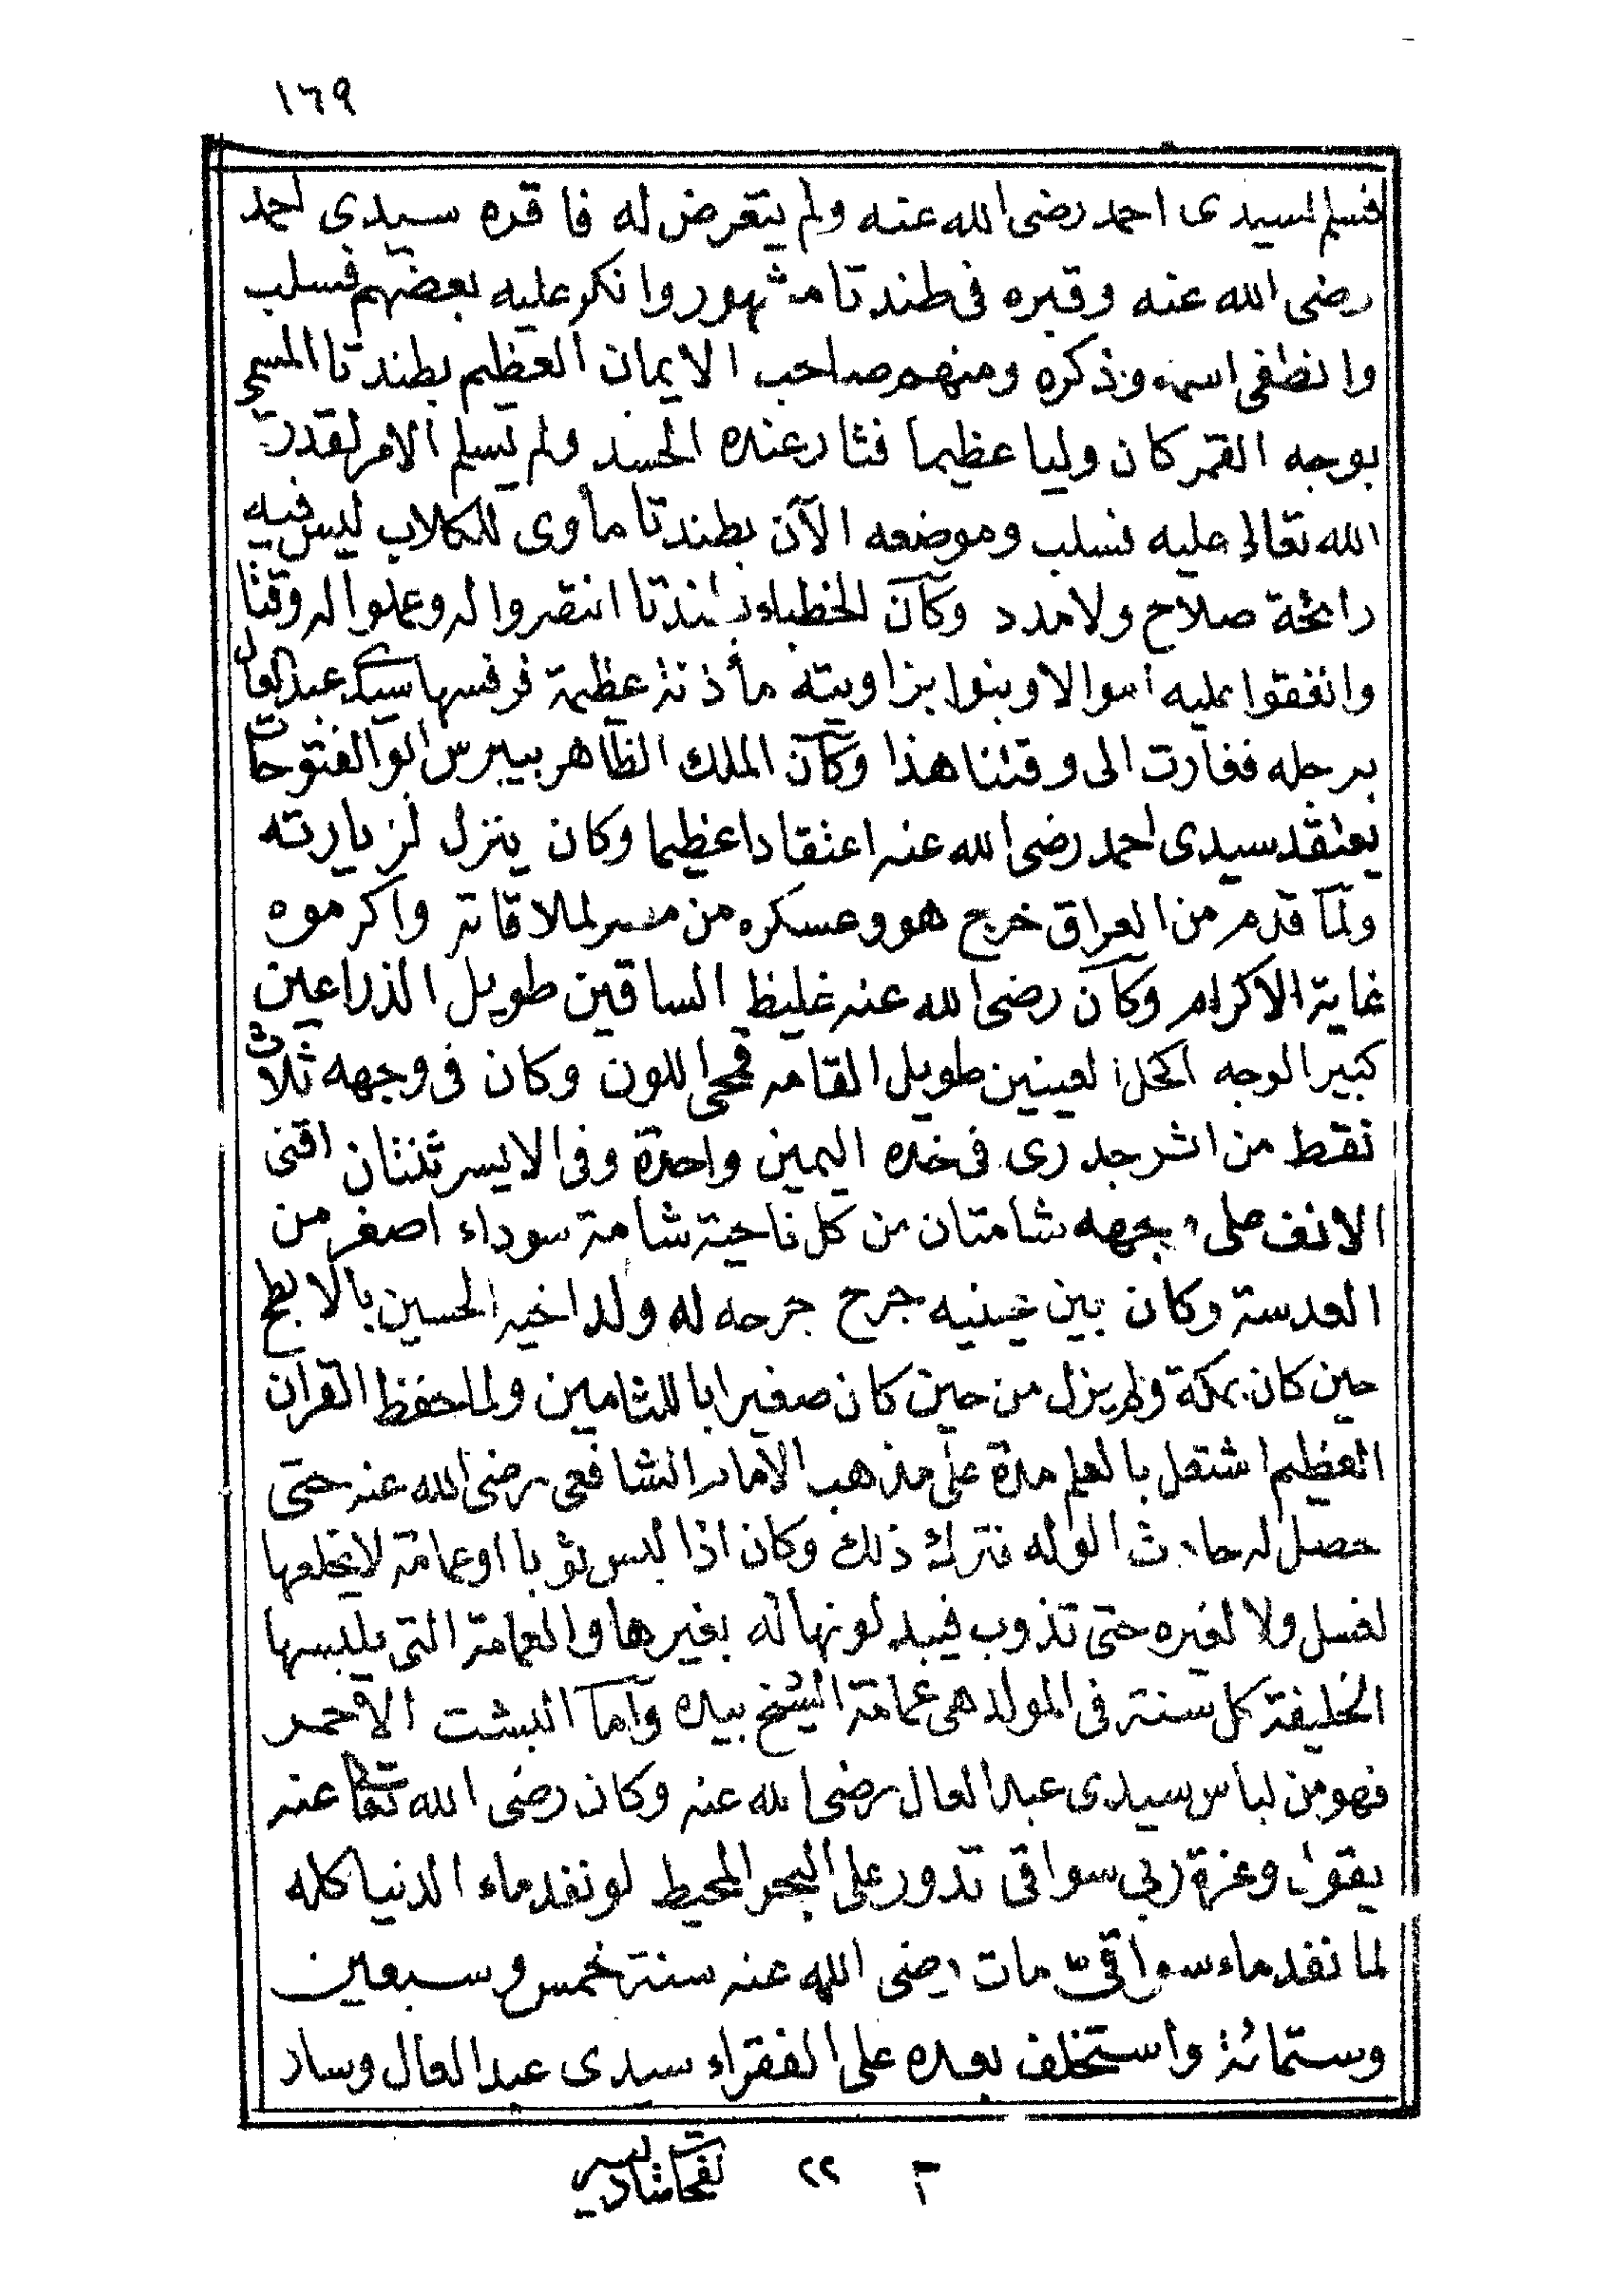 ١٦٩
فسلم لسيدى احمد رضى الله عنه ولم يتعرض له فاقره سيدى احمد
رضى الله عنه وقبره فى طندتا مشهور وانكر عليه بعضهم فسلب
وانطفى اسمه وذكره ومنهم صاحب الايمان العظيم بطندتا المسمى
بوجه القمر كان وليا عظيما فثار عنده الحسد ولم يسلم الامر لقدرة
الله تعالى عليه فسلب وموضعه الآن بطندتا مأوى للكلاب ليس فيه
رائحة صلاح ولا مدد وكان الخطباء بطندتا انتصروا له وعملوا له وقتا
وانفقوا عليه اموالا وبنوا بزاويته مأذنة عظيمة فرفسها سيدى عبد العال
برجله فغارت الى وقتنا هذا وكان الملك الظاهر بيبرس ابو الفتوحات
يعتقد سيدى احمد رضى الله عنه اعتقادا عظيما وكان ينزل لزيارته
ولما قدم من العراق خرج هو وعسكره من مصر لملاقاته واكرموه
غاية الاكرام وكان رضى الله عنه غليظ الساقين طويل الذراعين
كبير الوجه اكحل العينين طويل القامه قمحى اللون وكان فى وجهه ثلاث
نقط من اثر جدرى فى خده اليمين واحدة وفى الايسر ثنتان اقنى
الانف على وجهه شامتان من كل ناحية شامة سوداء اصغر من
العدسة وكان بين عينيه جرح جرحه له ولد اخيه الحسين بالابطح
حين كان بمكة ولم يزل من حين كان صغيرا باللثامين ولما حفظ القران
العظيم اشتغل بالعلم مدة على مذهب الامام الشافعى رضى الله عنه حتى
حصل له حادث الوله فترك ذلك وكان اذا لبس ثوبا او عمامة لا يخلعها
لغسل ولا لغيره حتى تذوب فيبدلونها له بغيرها والعمامة التى يلبسها
الخليفة كل سنة فى المولد هى عمامة الشيخ بيده وأما البشت الاحمر
فهو من لباس سيدى عبد العال رضى الله عنه وكان رضى الله تعالى عنه
يقول وعزة ربى سواقى تدور على البحر المحيط لو نفد ماء الدنيا كله
لما نفد ماء سواقى مات رضى الله عنه سنة خمس وسبعين
وستمائة واستخلف بعده على الفقراء سيدى عبد العال وسار
م ٢٢